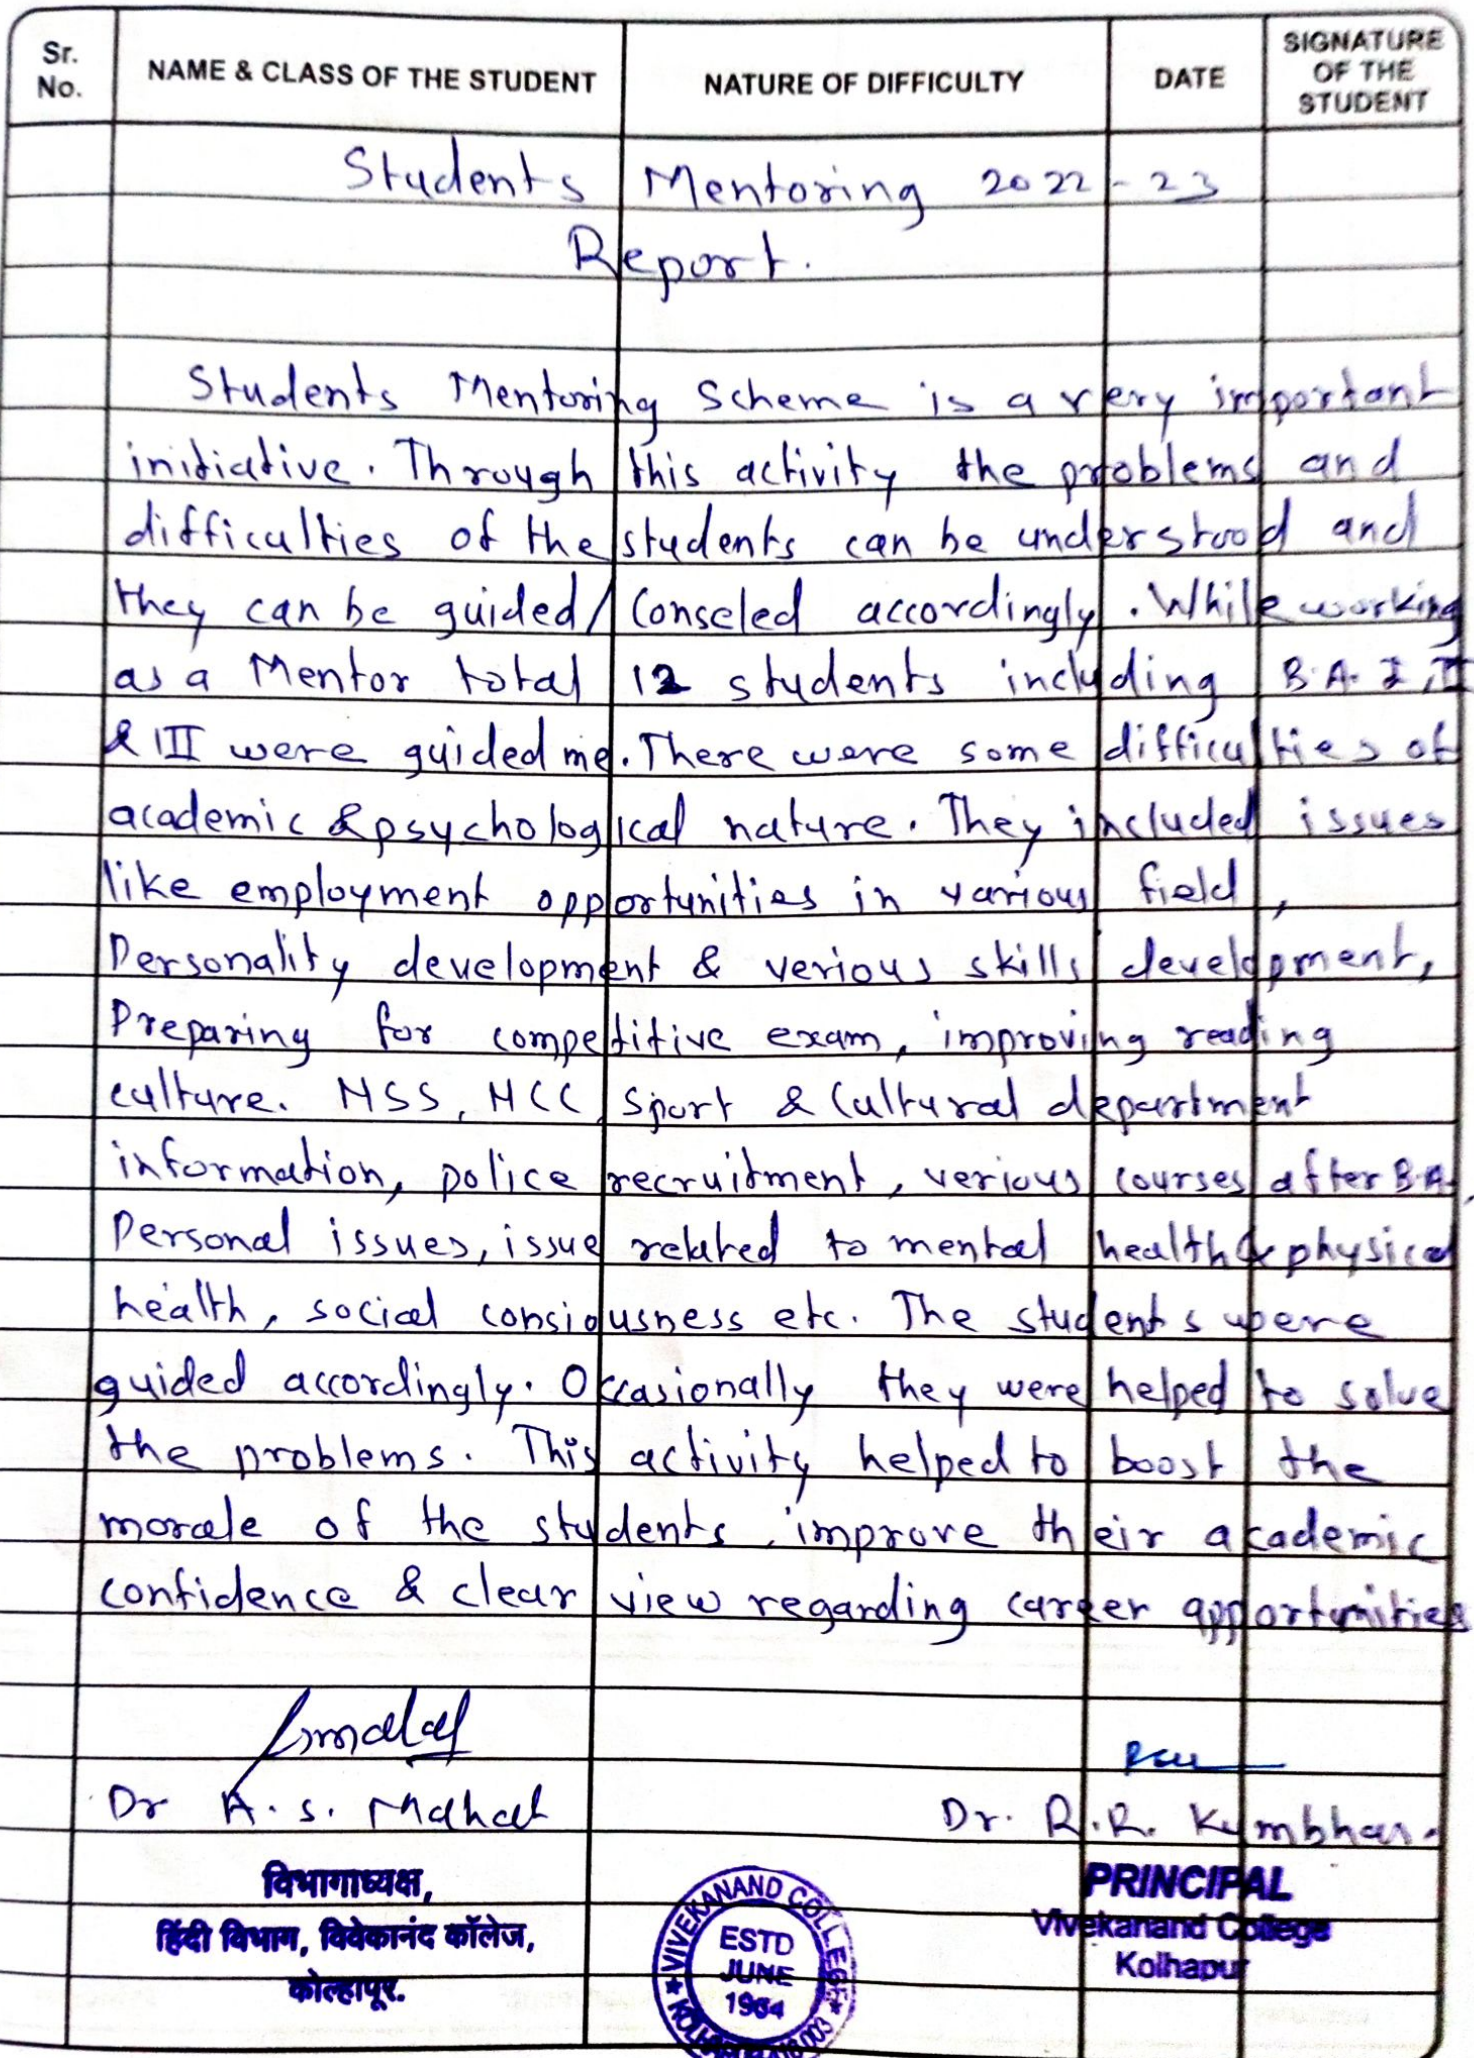 Sr. No.
NAME & CLASS OF THE STUDENT
NATURE OF DIFFICULTY
DATE
SIGNATURE OF THE STUDENT
Students Mentoring 2022-23
Report.
Students Mentoring Scheme is a very important
initiative. Through this activity the problems and
difficulties of the students can be understood and
they can be guided/ Conseled accordingly. While working
as a Mentor total 12 students including B.A. I, II
& III were guided me. There were some difficulties of
academic & psychological nature. They included issues
like employment opportunities in various field,
Personality development & verious skills development,
Preparing for competitive exam, improving reading
culture. NSS, NCC, Sport & Cultural department
information, police recruitment, verious courses after B.A.,
Personal issues, issue related to mental health & physical
health, social consiousness etc. The students were
guided accordingly. Occasionally they were helped to solve
the problems. This activity helped to boost the
morale of the students, improve their academic
confidence & clear view regarding career opportunities
Dr A. S. Mahat
Dr. R. R. Kumbhar.
विभागाध्यक्ष,
हिंदी विभाग, विवेकानंद कॉलेज,
कोल्हापूर.
VIVEKANAND COLLEGE
ESTD
JUNE
1964
PRINCIPAL
Vivekanand College
Kolhapur